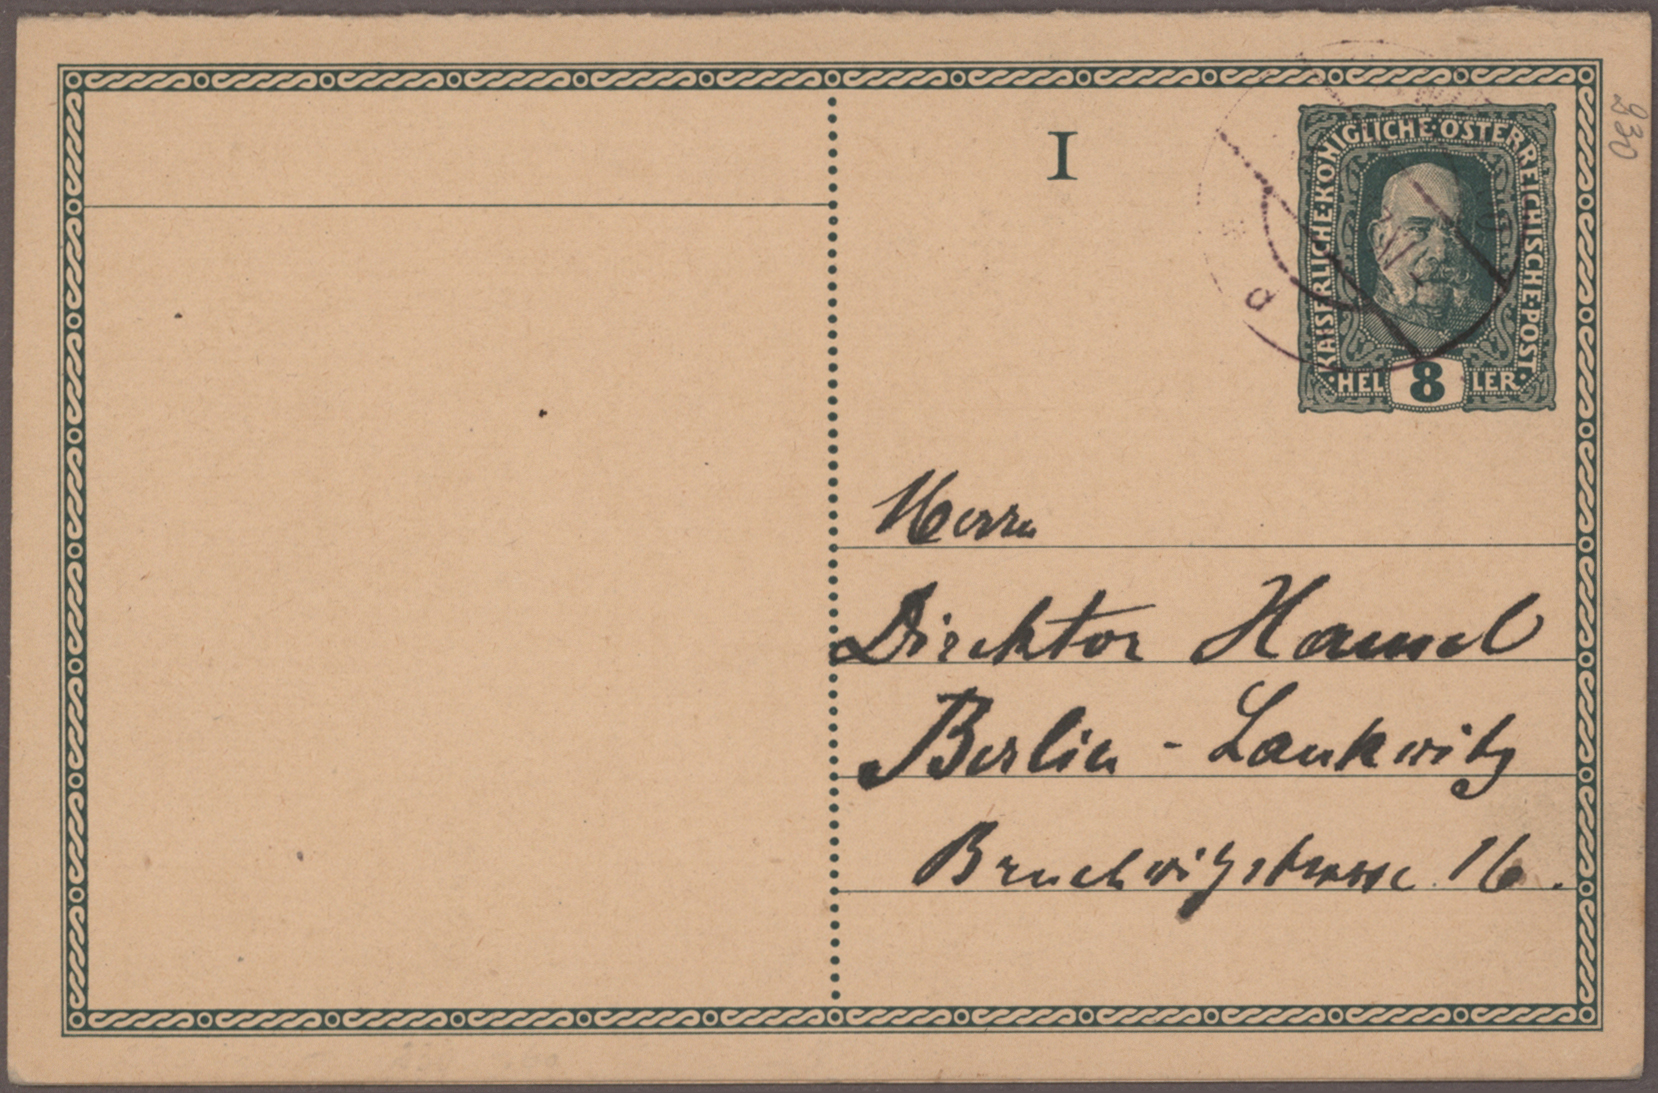 I
KAISERLICHE·KÖNIGLICHE·ÖSTERREICHISCHE·POST
HELLER
8
930
Herrn
Direktor Hamel
Berlin - Lankwitz
Bruchwitzstrasse 16.